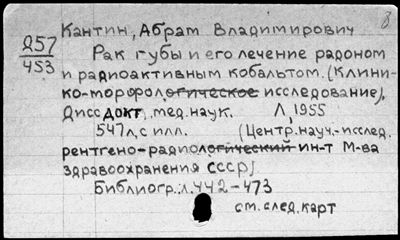 8
Кантин, Абрам Владимирович
Д57
453
Рак губы и его лечение радоном
и радиоактивным кобальтом. (Клини-
ко-морфологическое исследование).
Дисс докт. мед. наук. Л, 1955
547 л, с илл. (Центр. науч.-исслед.
рентгено-радиологический ин-т М-ва
здравоохранения СССР)
Библиогр: л. 442-473
см. след. карт